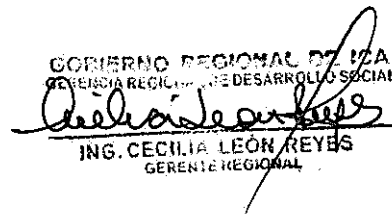 GOBIERNO REGIONAL DE ICA
GERENCIA REGIONAL DE DESARROLLO SOCIAL
ING. CECILIA LEÓN REYES
GERENTE REGIONAL